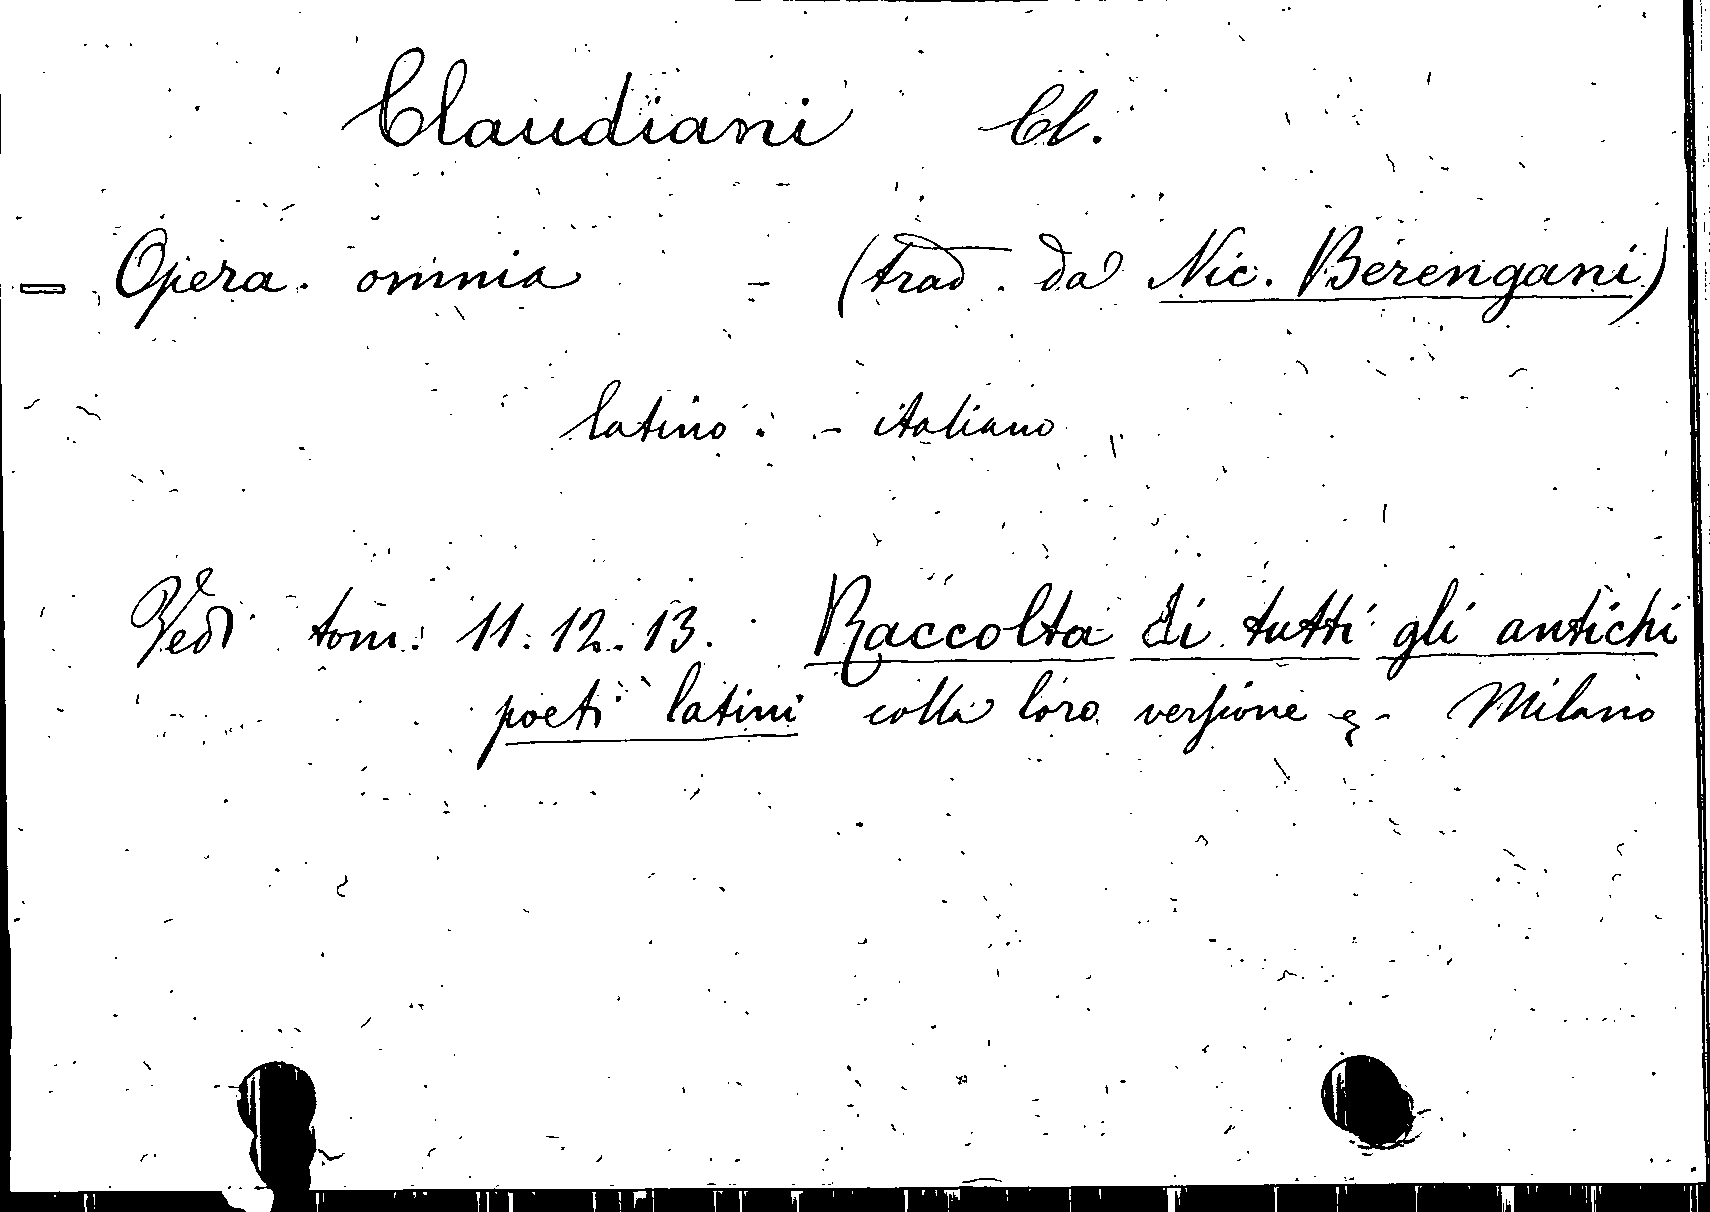 Claudiani Cl.
= Opera omnia - (trad. da Nic. Berengani)
latino - italiano
Vedi tom. 11. 12. 13. Raccolta di tutti gli antichi
poeti latini colla loro versione - Milano